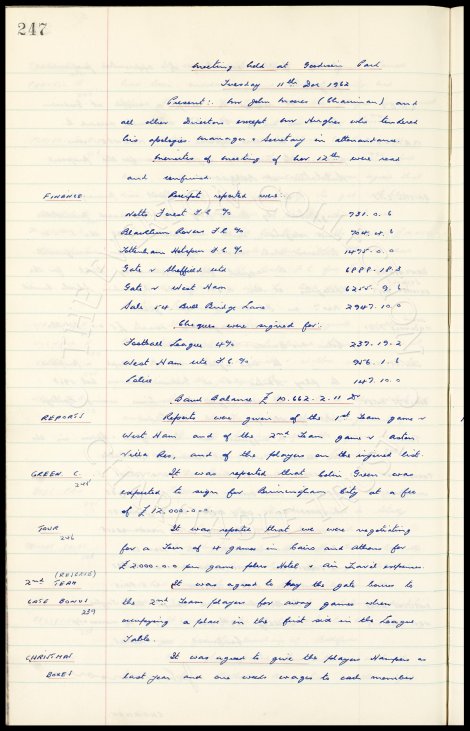 247
Meeting held at Goodison Park
Tuesday 11th Dec 1962
Present: Mr John Moores (Chairman) and
all other Directors except Mr Hughes who tendered
his apologies manager & Secretary in attendance.
Minutes of meeting of Nov 12th were read
and confirmed.
FINANCE Receipts reported were:
Notts Forest F.C % 731.0.6
Blackburn Rovers F.C % 704.4.6
Tottenham Hotspur F.C % 1475.0.0
Gate v Sheffield utd 6888.18.3
Gate v West Ham 6255.9.6
Sale 54 Bull Bridge Lane 2947.10.0
Cheques were signed for:
Football League 4% 239.19.2
West Ham utd F.C. % 956.1.6
Police 147.10.0
Bank Balance £ 10.662.2.11 Dr
REPORTS Reports were given of the 1st Team game v
West Ham and of the 2nd Team game v Aston
Villa Res, and of the players on the injured list.
GREEN C. It was reported that Colin Green was
expected to sign for Birmingham City at a fee
of £12.000-0.0.
TOUR It was reported that we were negotiating
246 for a Tour of 4 games in Cairo and Athens for
£2000-0.0 per game plus Hotel & Air Travel expenses.
2nd (RESERVE) TEAM It was agreed to pay the gate bonus to
GATE BONUS the 2nd Team players for away games when
239 occupying a place in the first six in the League
Table.
CHRISTMAS It was agreed to give the players Hampers as
BOXES last year and one weeks wages to each member